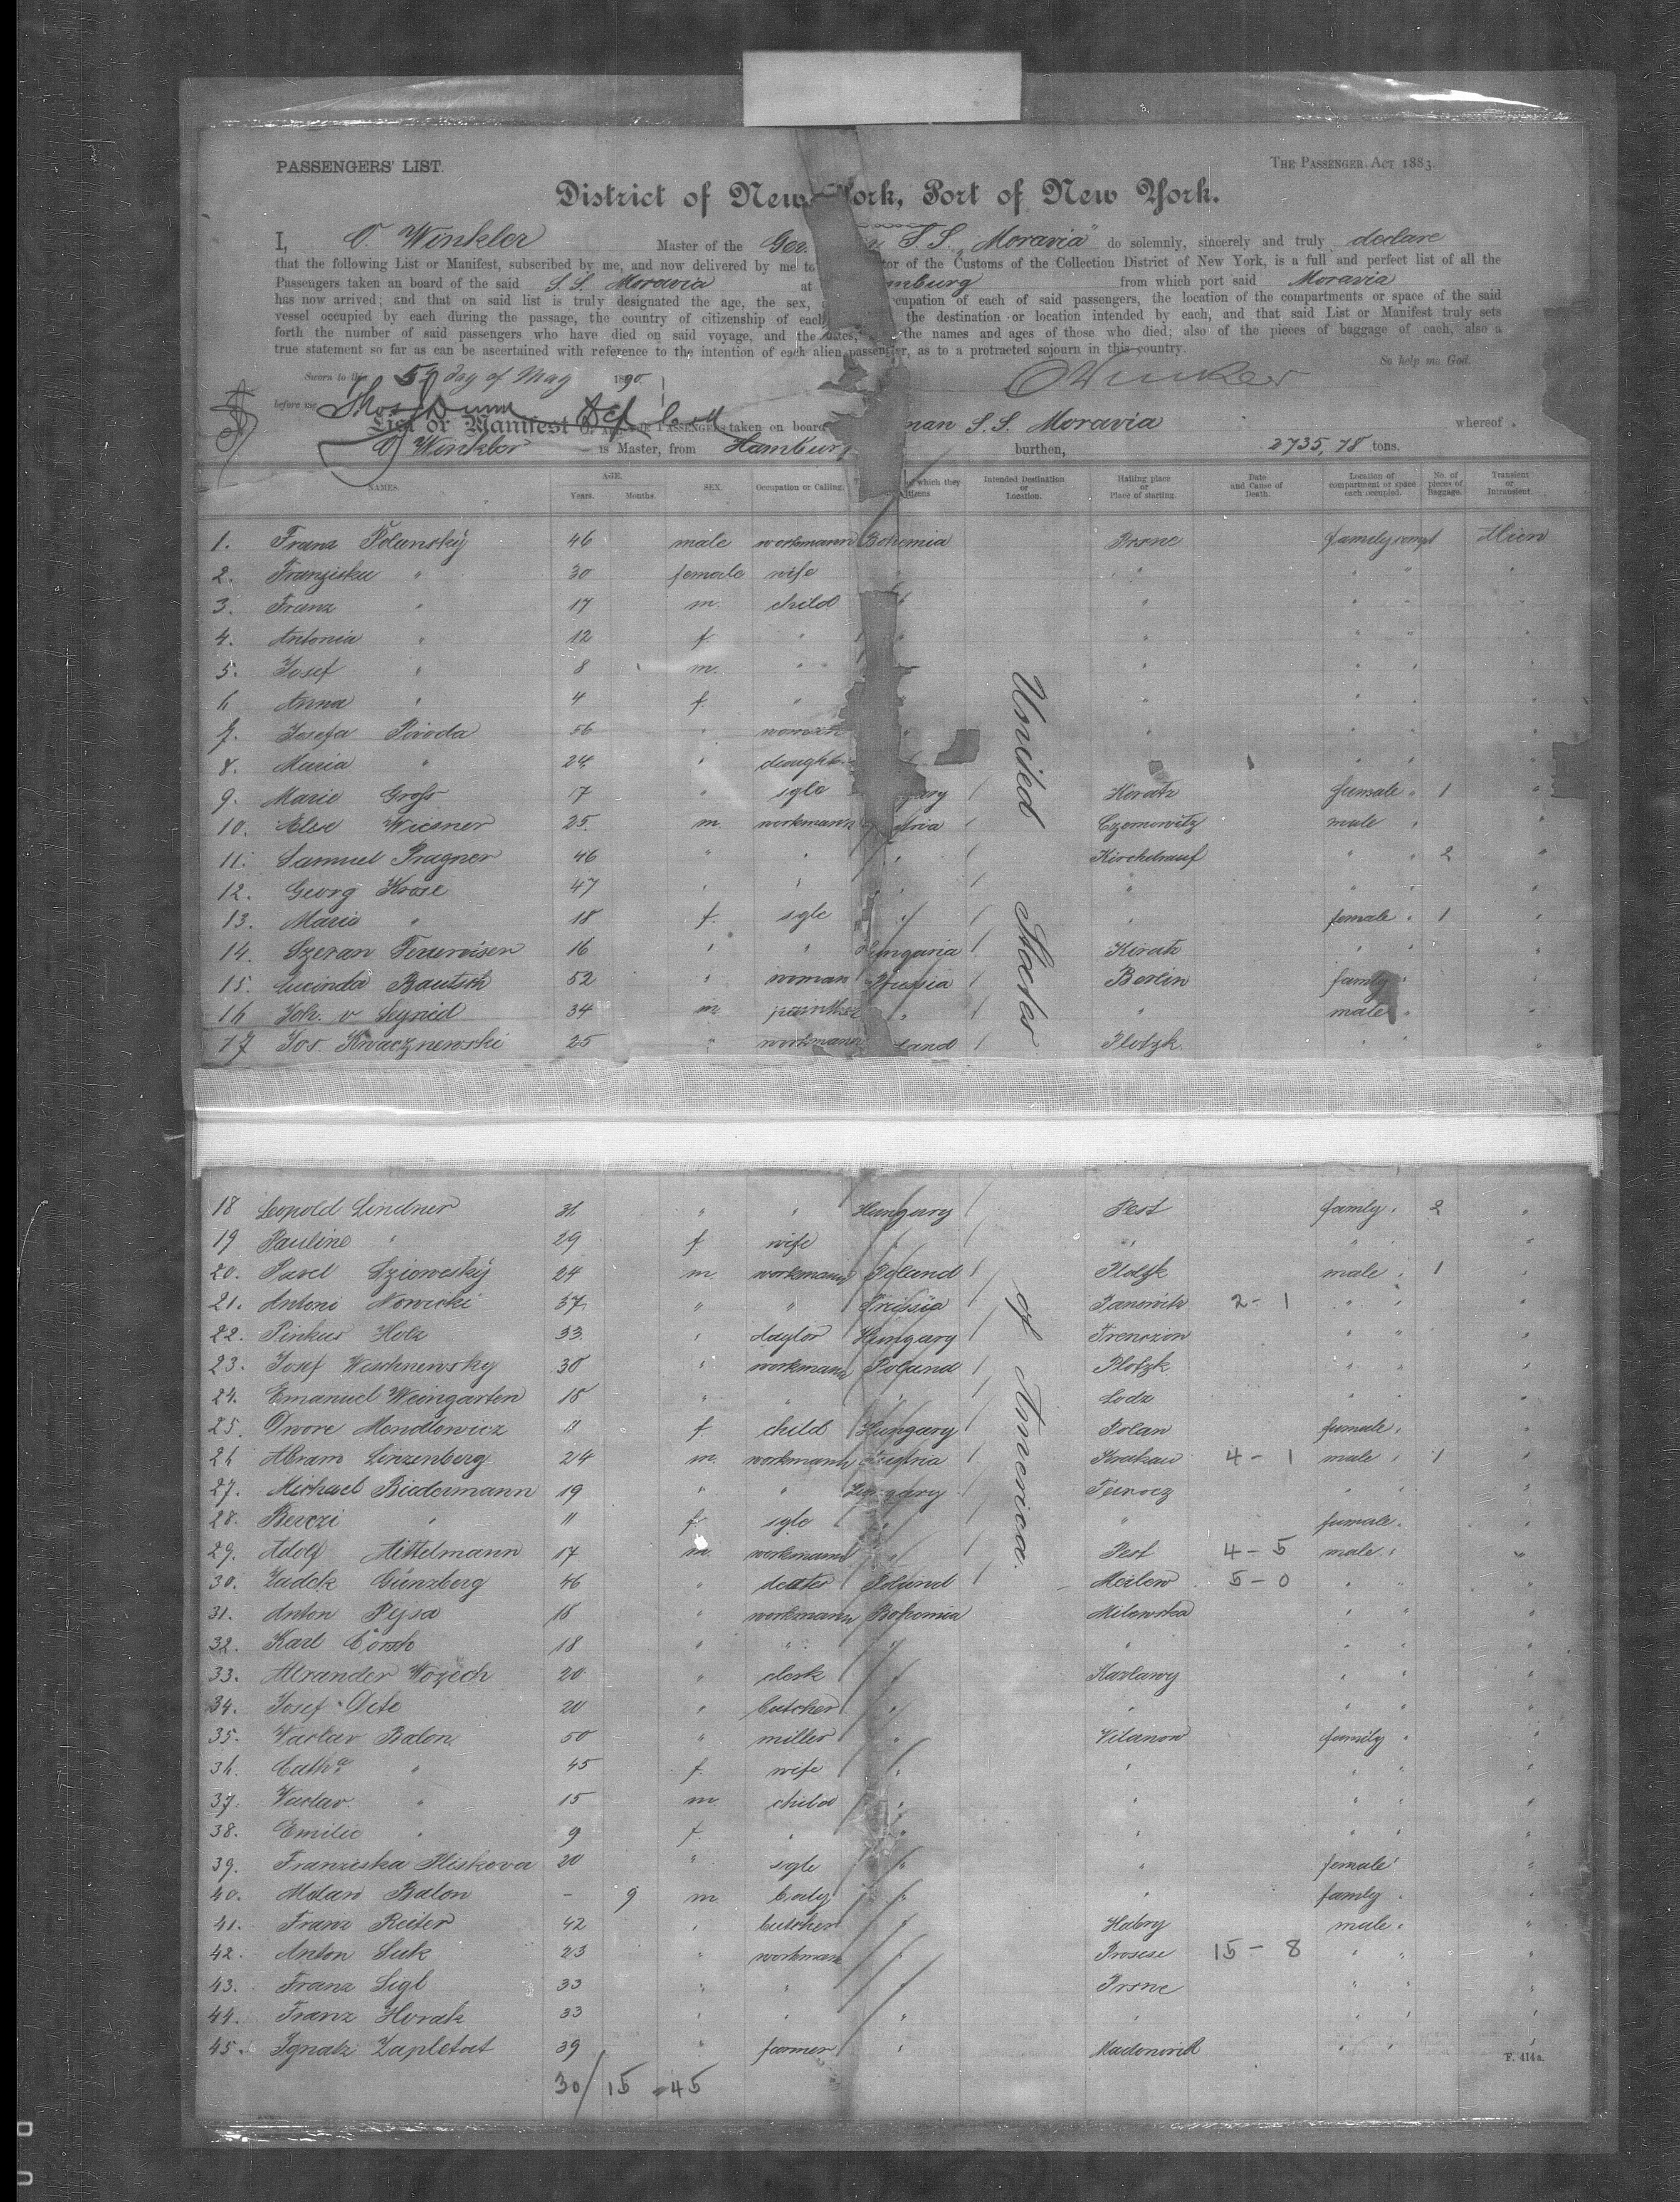 PASSENGERS' LIST.
THE PASSENGER ACT 1883.
District of New York, Port of New York.
I, O. Winkler Master of the Ger. S.S. "Moravia" do solemnly, sincerely and truly declare
that the following List or Manifest, subscribed by me, and now delivered by me to tor of the Customs of the Collection District of New York, is a full and perfect list of all the
Passengers taken an board of the said S.S. Moravia at mburg from which port said Moravia
has now arrived; and that on said list is truly designated the age, the sex, cupation of each of said passengers, the location of the compartments or space of the said
vessel occupied by each during the passage, the country of citizenship of each the destination or location intended by each, and that said List or Manifest truly sets
forth the number of said passengers who have died on said voyage, and the dates, the names and ages of those who died; also of the pieces of baggage of each, also a
true statement so far as can be ascertained with reference to the intention of each alien passenger, as to a protracted sojourn in this country.
So help me God.
Sworn to this 5th day of May 1890.
OWinkler
before me
List or Manifest OF ALL THE PASSENGERS taken on board man S.S. Moravia whereof
O Winkler is Master, from Hamburg burthen, 2735,78 tons.
NAMES. AGE. Years. Months. SEX. Occupation or Calling. which they Intended Destination or Location. Hailing place or Place of starting. Date and Cause of Death. Location of compartment or space each occupied. No. of pieces of Baggage. Transient or Intransient.
United States of America.
1. Franz Polansky 46 male workmann Bohemia Prsne family compt Alien
2. Franziska " 30 female wife " " " " "
3. Franz " 17 m. child " " " " "
4. Antonia " 12 f. " " " " " "
5. Josef " 8 m. " " " " "
6 Anna " 4 f. " " " " "
7. Josefa Pivoda 56 " woman " " " " "
8. Maria " 24 " daught " " " "
9. Marie Gross 17 " sgle gary Koratz female " 1 "
10. Else Wiesner 25. m. workmann tria Czernowitz male " "
11. Samuel Pragner 46 " " " Kirchdrauf " " 2 "
12. Georg Krose 47 " " " " " " "
13. Marie " 18 f. sgle " " female " 1 "
14. 16 " " Hungaria Kiratz " "
15. Lucinda Bautsch 52 " woman Prussia Berlin family "
16 Joh. v 34 m " " male "
17 Jos. Kwacznewski 25 " workmann land Plotzk. " "
18 Leopold Lindner 31. " " Hungary Pest family " 2 "
19 Pauline " 29 f wife " " " " "
20. Pavel 24 m. workmann Poland Plotzk male " 1 "
21. Antoni Nowicki 37. " " Prussia Janowitz 2 - 1 " " "
22. Pinkus Holz 33. " taylor Hungary Trenczin " " "
23. Josef Wischnewsky 30 " workmann Poland Plotzk " " "
24. Emanuel Weingarten 18 " " " Lodz " " "
25. Dwore Mendlowicz 11 f child Hungary Polan female " "
26 Abram Linzenberg 24 m. workmann Austria Krakau 4 - 1 male " 1 "
27. Michael Biedermann 19 " " Hungary Turocz " " "
28. Berczi " 11 f sgle " " female " "
29. Adolf Mittelmann 17 m. workmann " Pest 4 - 5 male " "
30. Zudek Günzberg 46 " Poland 5 - 0 " " "
31. Anton Pejsa 18 " workmann Bohemia Milewska " " "
32. Karl 18 " " " " " " "
33. Alexander Wozech 20 " clerk " Karlawy " " "
34. Josef Dete 20 " butcher " " " " "
35. Vaclav Balon 50 " miller " Vilanow family " "
36. Catha " 45 f. wife " " " " "
37. Vaclav " 15 m. child " " " " "
38. Emilie " 9 f. " " " " " "
39. Franziska Pliskova 20 " sgle " " female " "
40. Balon - 9 m. baby " " family "
41. Franz Reiter 42 " butcher " Habry male " "
42. Anton Suk 23 " workman " Prosese 15 - 8 " " "
43. Franz Sigl 33 " " " Prsne " " "
44. Franz Horak 33 " " " " " " "
45. Ignatz Zapletat 39 " farmer " " " "
F. 414a.
30/15 = 45